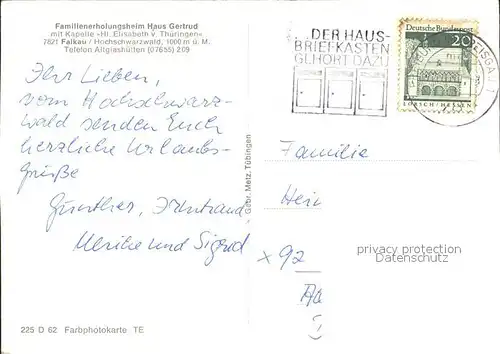 Familienerholungsheim Haus Gertrud
mit Kapelle »Hl. Elisabeth v. Thüringen«
7821 Falkau / Hochschwarzwald, 1000 m ü. M.
Telefon Altglashütten (07655) 209
...DER HAUS-
BRIEFKASTEN
GEHÖRT DAZU
Deutsche Bundespost
20
LORSCH/HESSEN
Ihr Lieben,
vom Hochschwarz-
wald senden Euch
herzliche Urlaubs-
grüße
Günther, Irmtraud,
Ulrike und Sigrid
Gebr. Metz, Tübingen
Familie
Hei
x 92
privacy protection
Datenschutz
225 D 62 Farbphotokarte TE